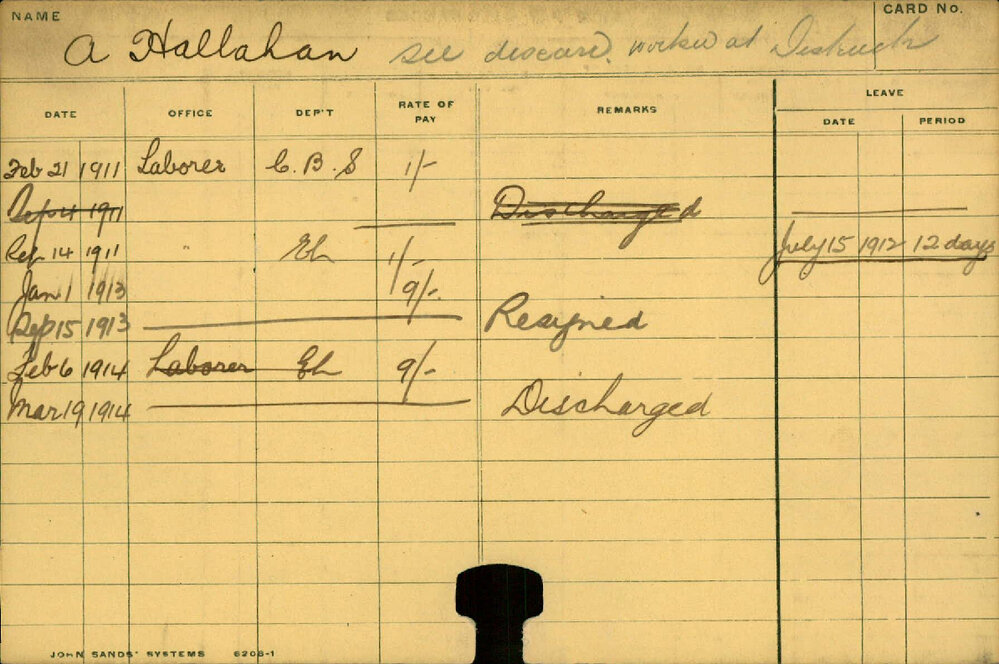 NAME
CARD No.
A Hallahan see worked at
DATE OFFICE DEP'T RATE OF PAY REMARKS LEAVE
DATE PERIOD
Feb 21 1911 Laborer C. B. S 1/-
Sep 4 1911 Discharged
Sep 14 1911 " Eh 1/- July 15 1912 12 days
Jan 1 1913 9/-
Sep 15 1913 Resigned
Feb 6 1914 Laborer Eh 9/-
Mar 19 1914 Discharged
JOHN SANDS' SYSTEMS 6208-1